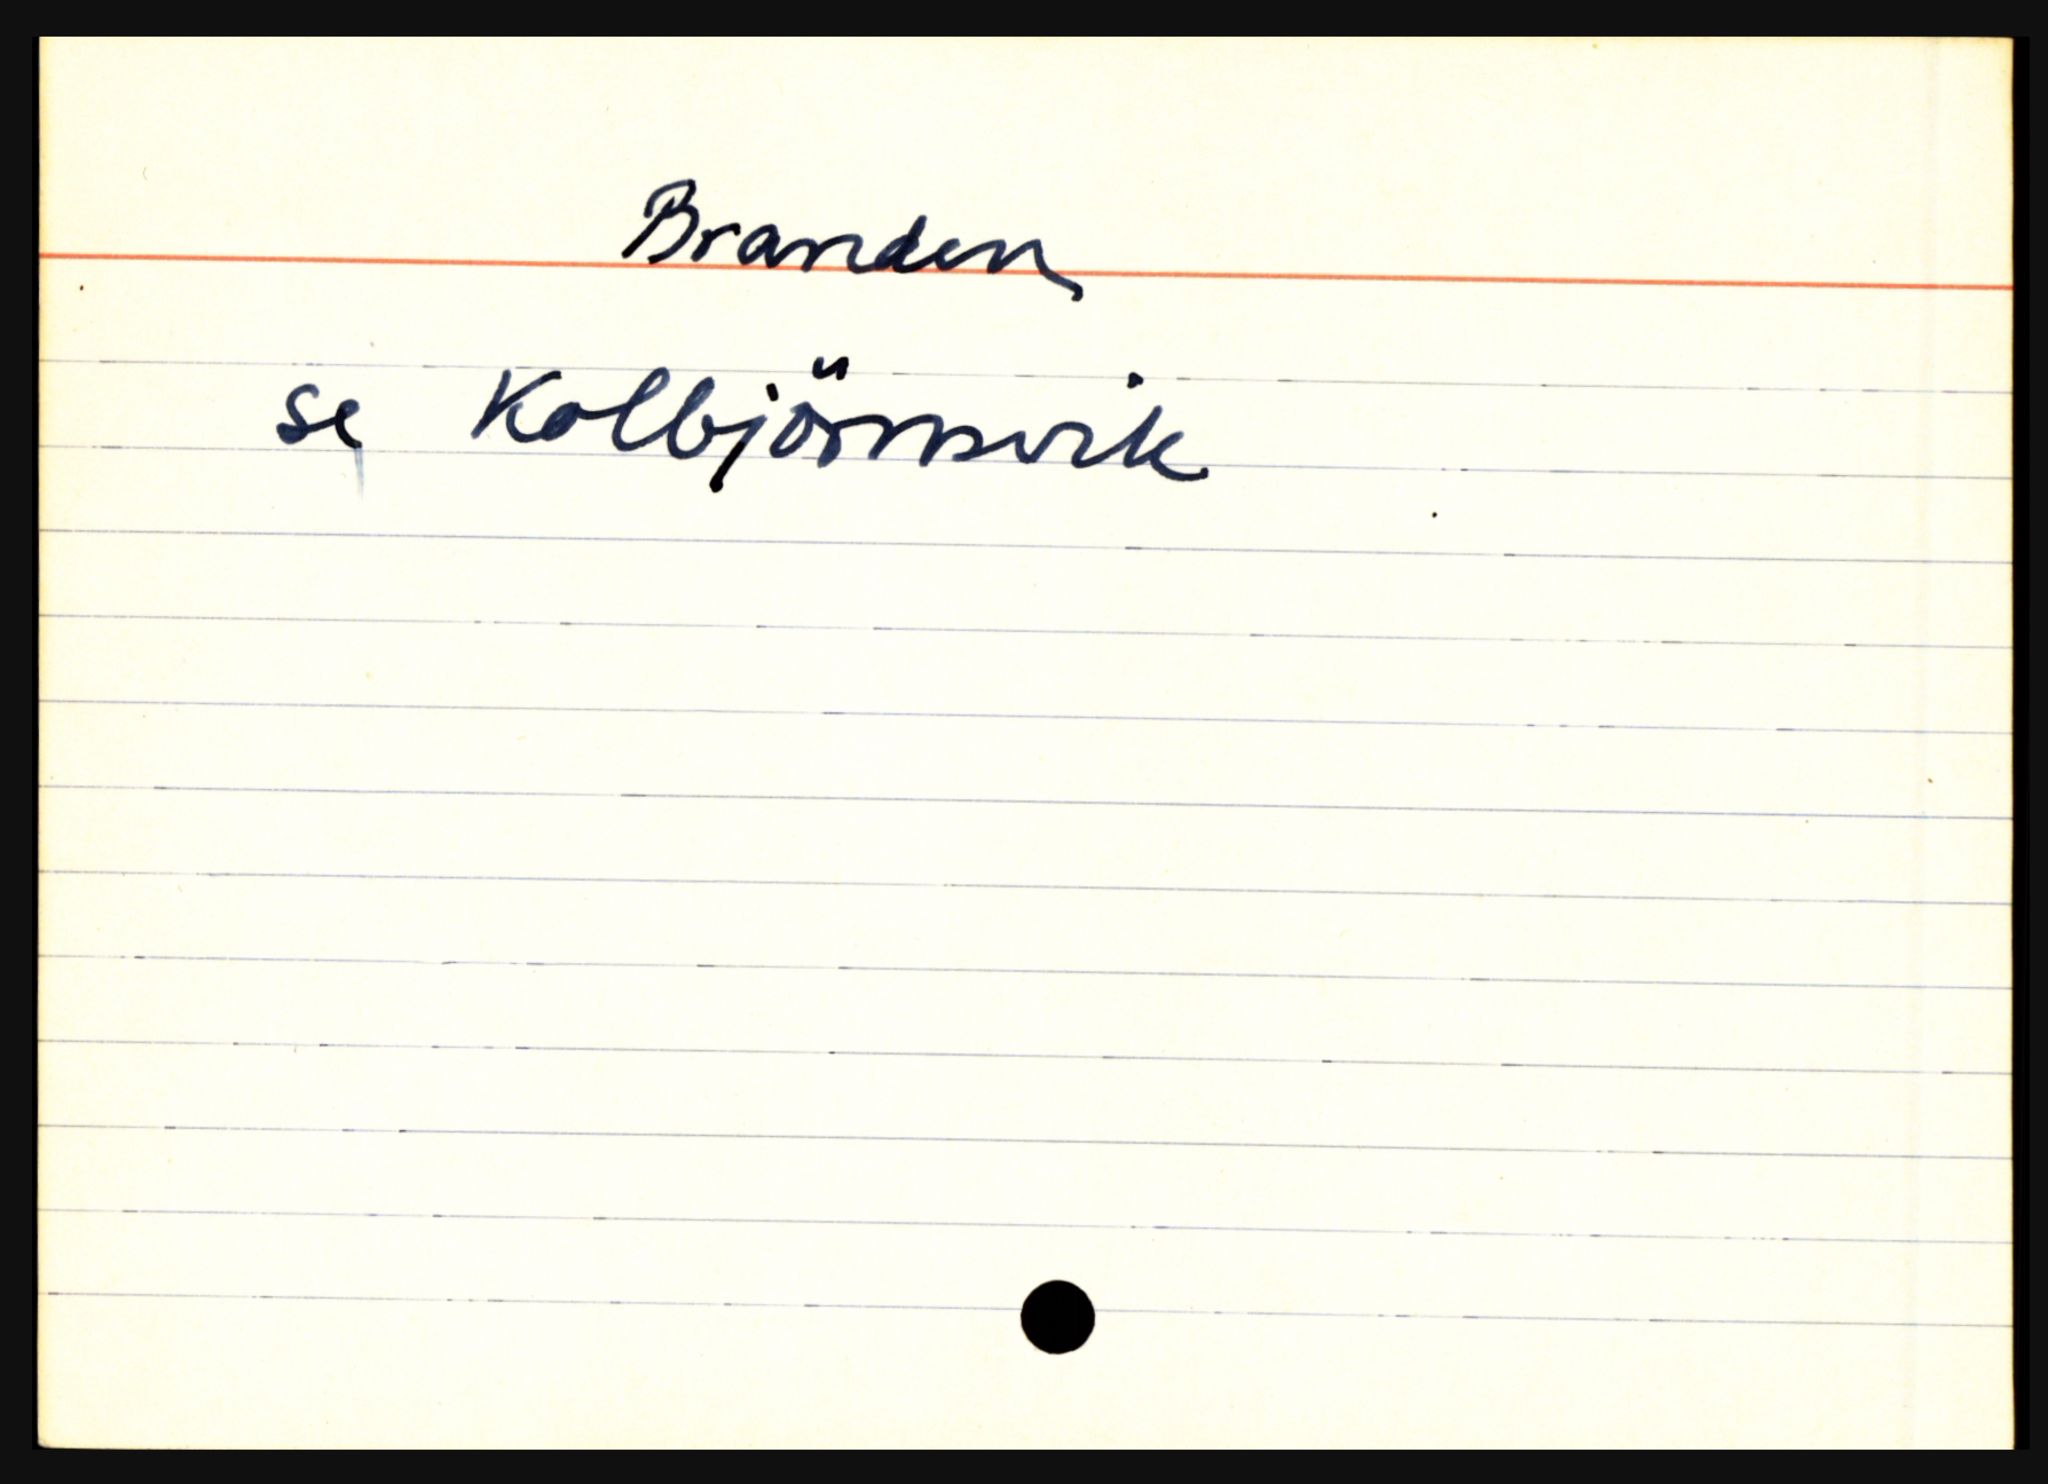 Branden
se Kolbjörnsvik